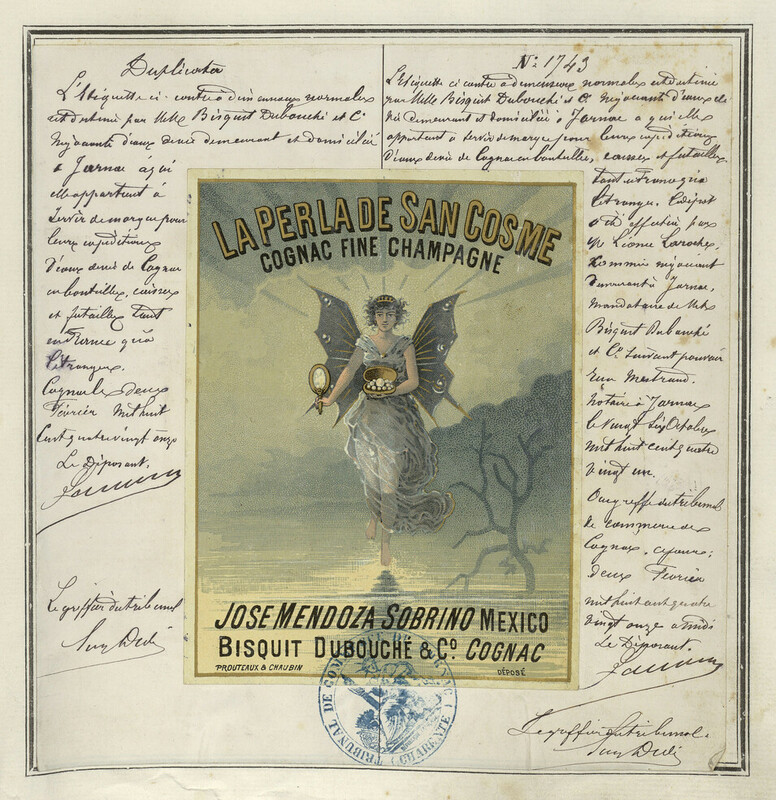 Duplicata
L'Etiquette ci-contre à dimensions normales
est destinée par MMs Bisquit Dubouché et Cº
Négociants d'eaux devie demeurant et domicilié
à Jarnac à qui
elle appartient à
servir de marque pour
leurs expéditions
d'eaux devie de Cognac
en bouteilles, caisses
et futailles tant
en France qu'à
l'étranger.
Cognac le deux
Février Mil huit
Cent quatre vingt onze
Le Déposant,
Le greffier du tribunal
Nº 1743
L'Etiquette ci contre à dimensions normales est destinée
par MMs Bisquit Dubouché et Cº Négociants d'eaux de
vie demeurant et domiciliés à Jarnac à qui elle
appartient à servir de marque pour leurs expéditions
d'eaux devie de Cognac en bouteilles, caisses et futailles
tant en France qu'à
l'étranger. Le dépôt
a été effectué par
Mr Léonce Laroche,
Commis négociant
demeurant à Jarnac,
mandataire de MMs
Bisquit Dubouché
et Cº suivant pouvoir
reçu Mestraud.
Notaire à Jarnac
le vingt six Octobre
mil huit cent quatre
vingt un.
Au greffe du tribunal
de commerce de
Cognac, ce jour;
deux Février
mil huit cent quatre
vingt onze à midi
Le Déposant.
Le greffier du tribunal
LA PERLA DE SAN COSME
COGNAC FINE CHAMPAGNE
JOSE MENDOZA SOBRINO MEXICO
BISQUIT DUBOUCHÉ & Cº COGNAC
PROUTEAUX & CHAUBIN DÉPOSÉ
TRIBUNAL DE COMMERCE DE COGNAC (CHARENTE)